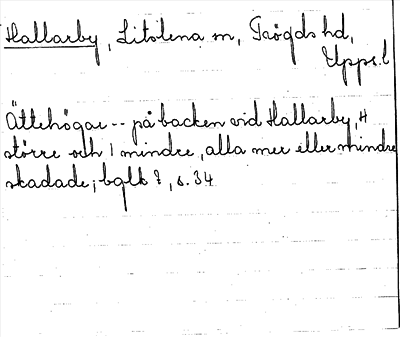 Hallarby, Litslena sn, Trögds hd,
Upps. l
Ättehögar -- på backen vid Hallarby, 4
större och 1 mindre, alla mer eller mindre
skadade; , s. 34